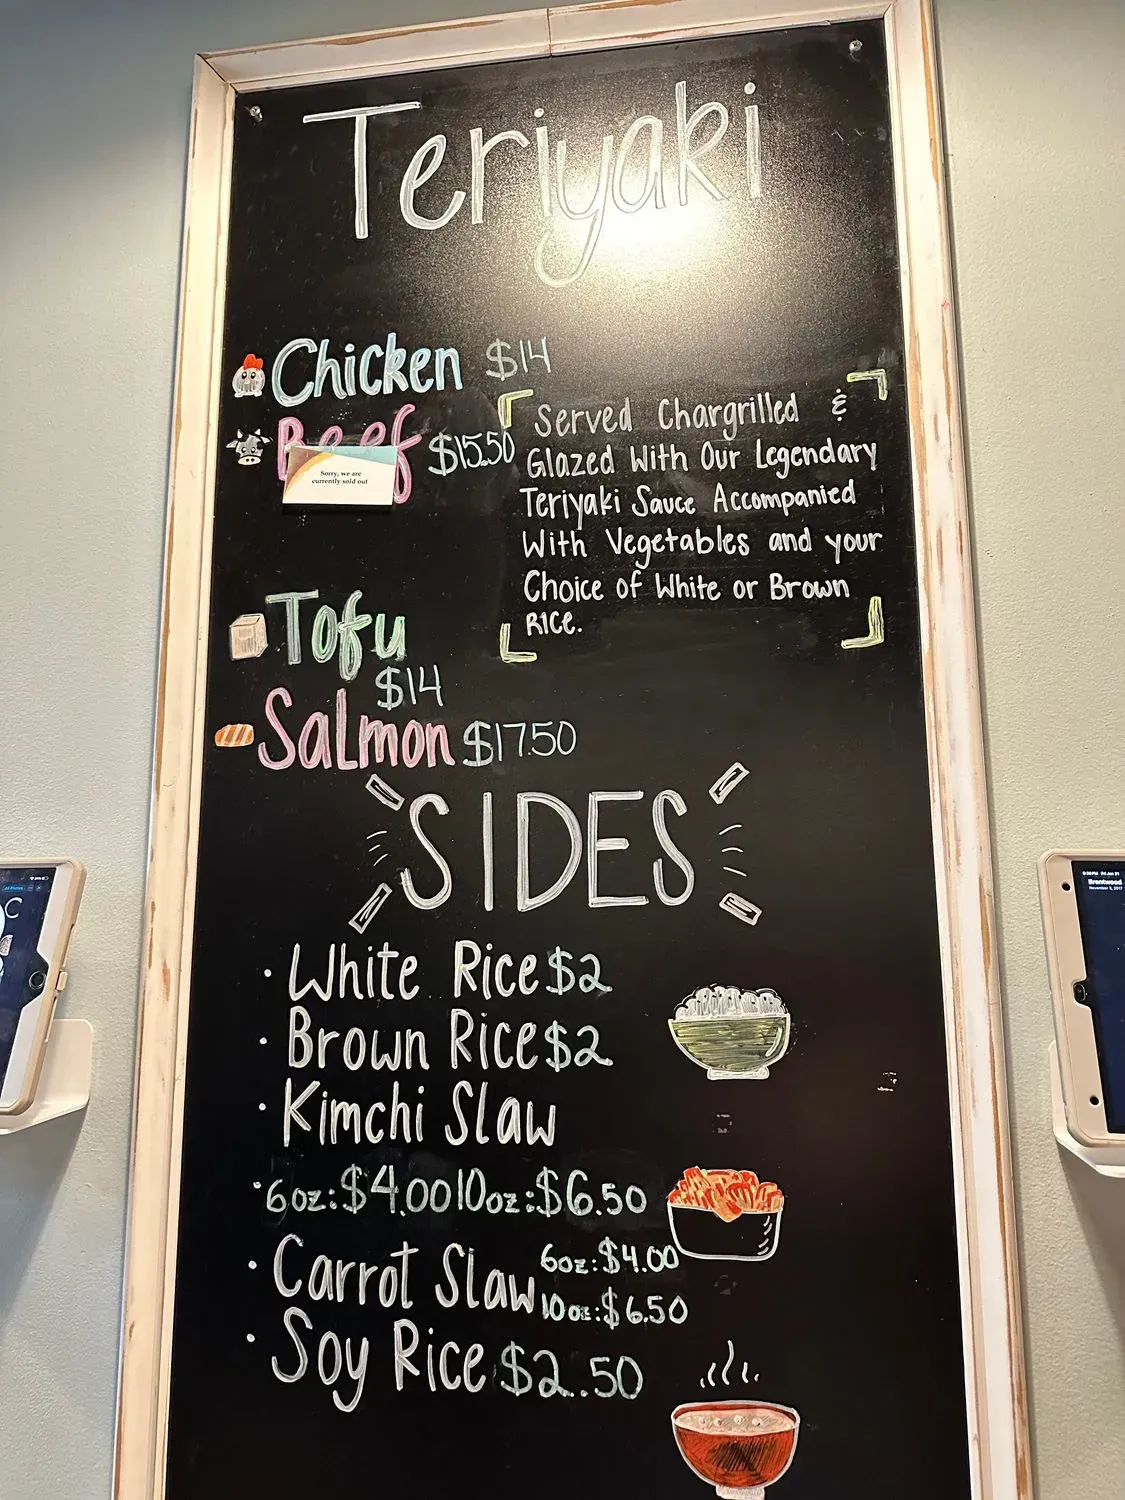 Teriyaki
Chicken $14
Beef $15.50
Sorry, we are
currently sold out
Served Chargrilled &
Glazed With Our Legendary
Teriyaki Sauce Accompanied
With Vegetables and your
Choice of White or Brown
Rice.
Tofu
$14
Salmon $17.50
SIDES
· White Rice $2
· Brown Rice $2
· Kimchi Slaw
· 6oz: $4.00 10oz: $6.50
· Carrot Slaw 6oz: $4.00
10oz: $6.50
· Soy Rice $2..50
All Photos
C
Fri Jan 31
Brentwood